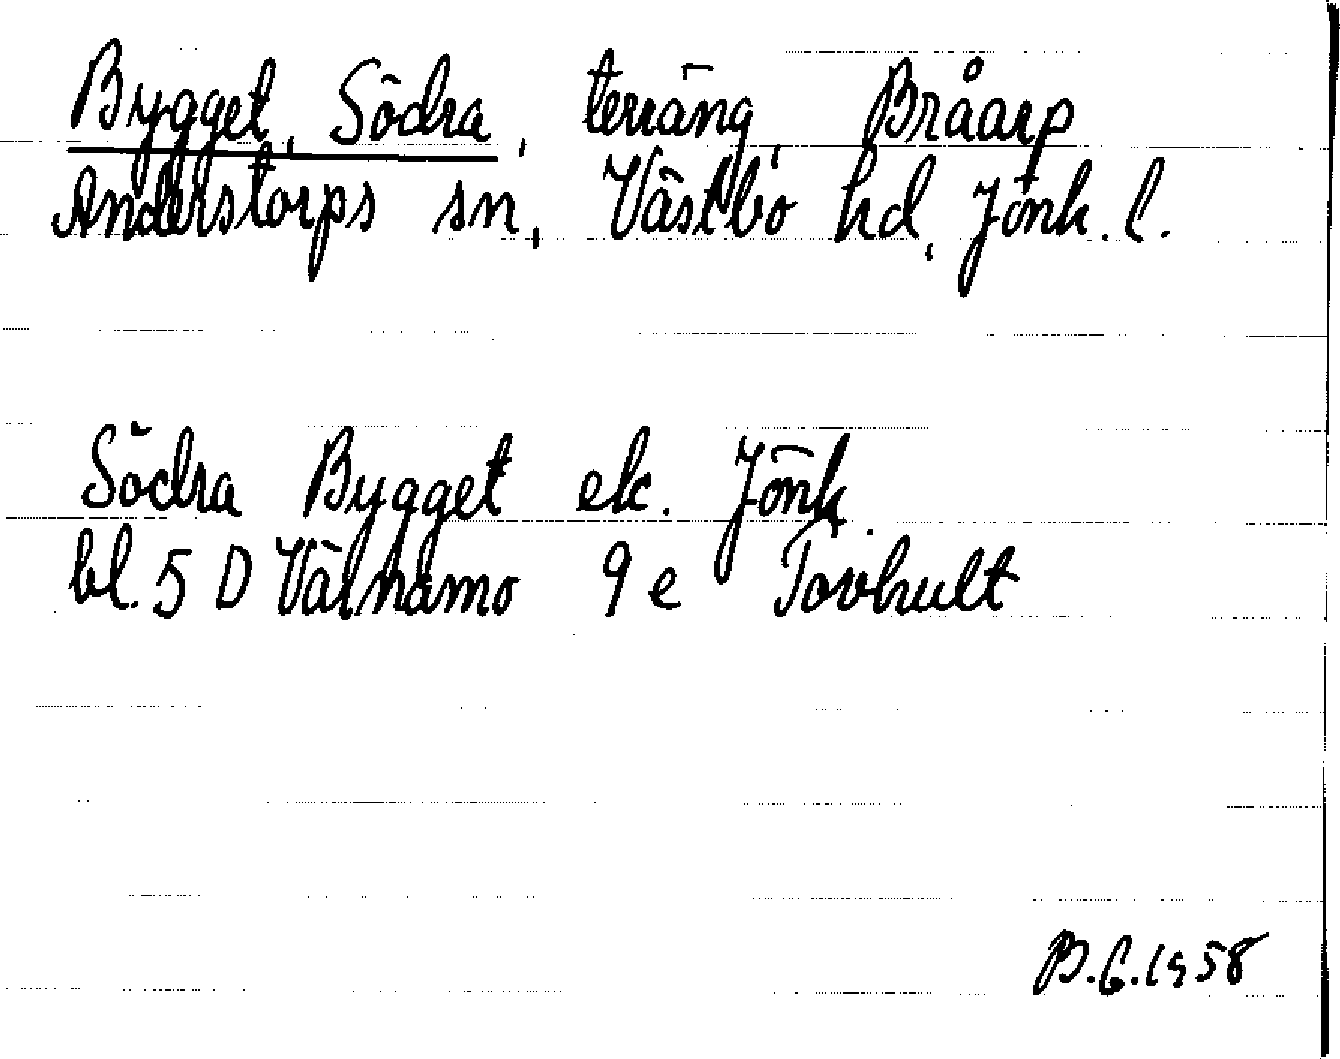 Bygget, Södra, terräng, Bråarp
Anderstorps sn, Västbo hd, Jönk. l.
Södra Bygget ek. Jönk.
bl. 5 D Värnamo 9 e Tovhult
B.G. 1958